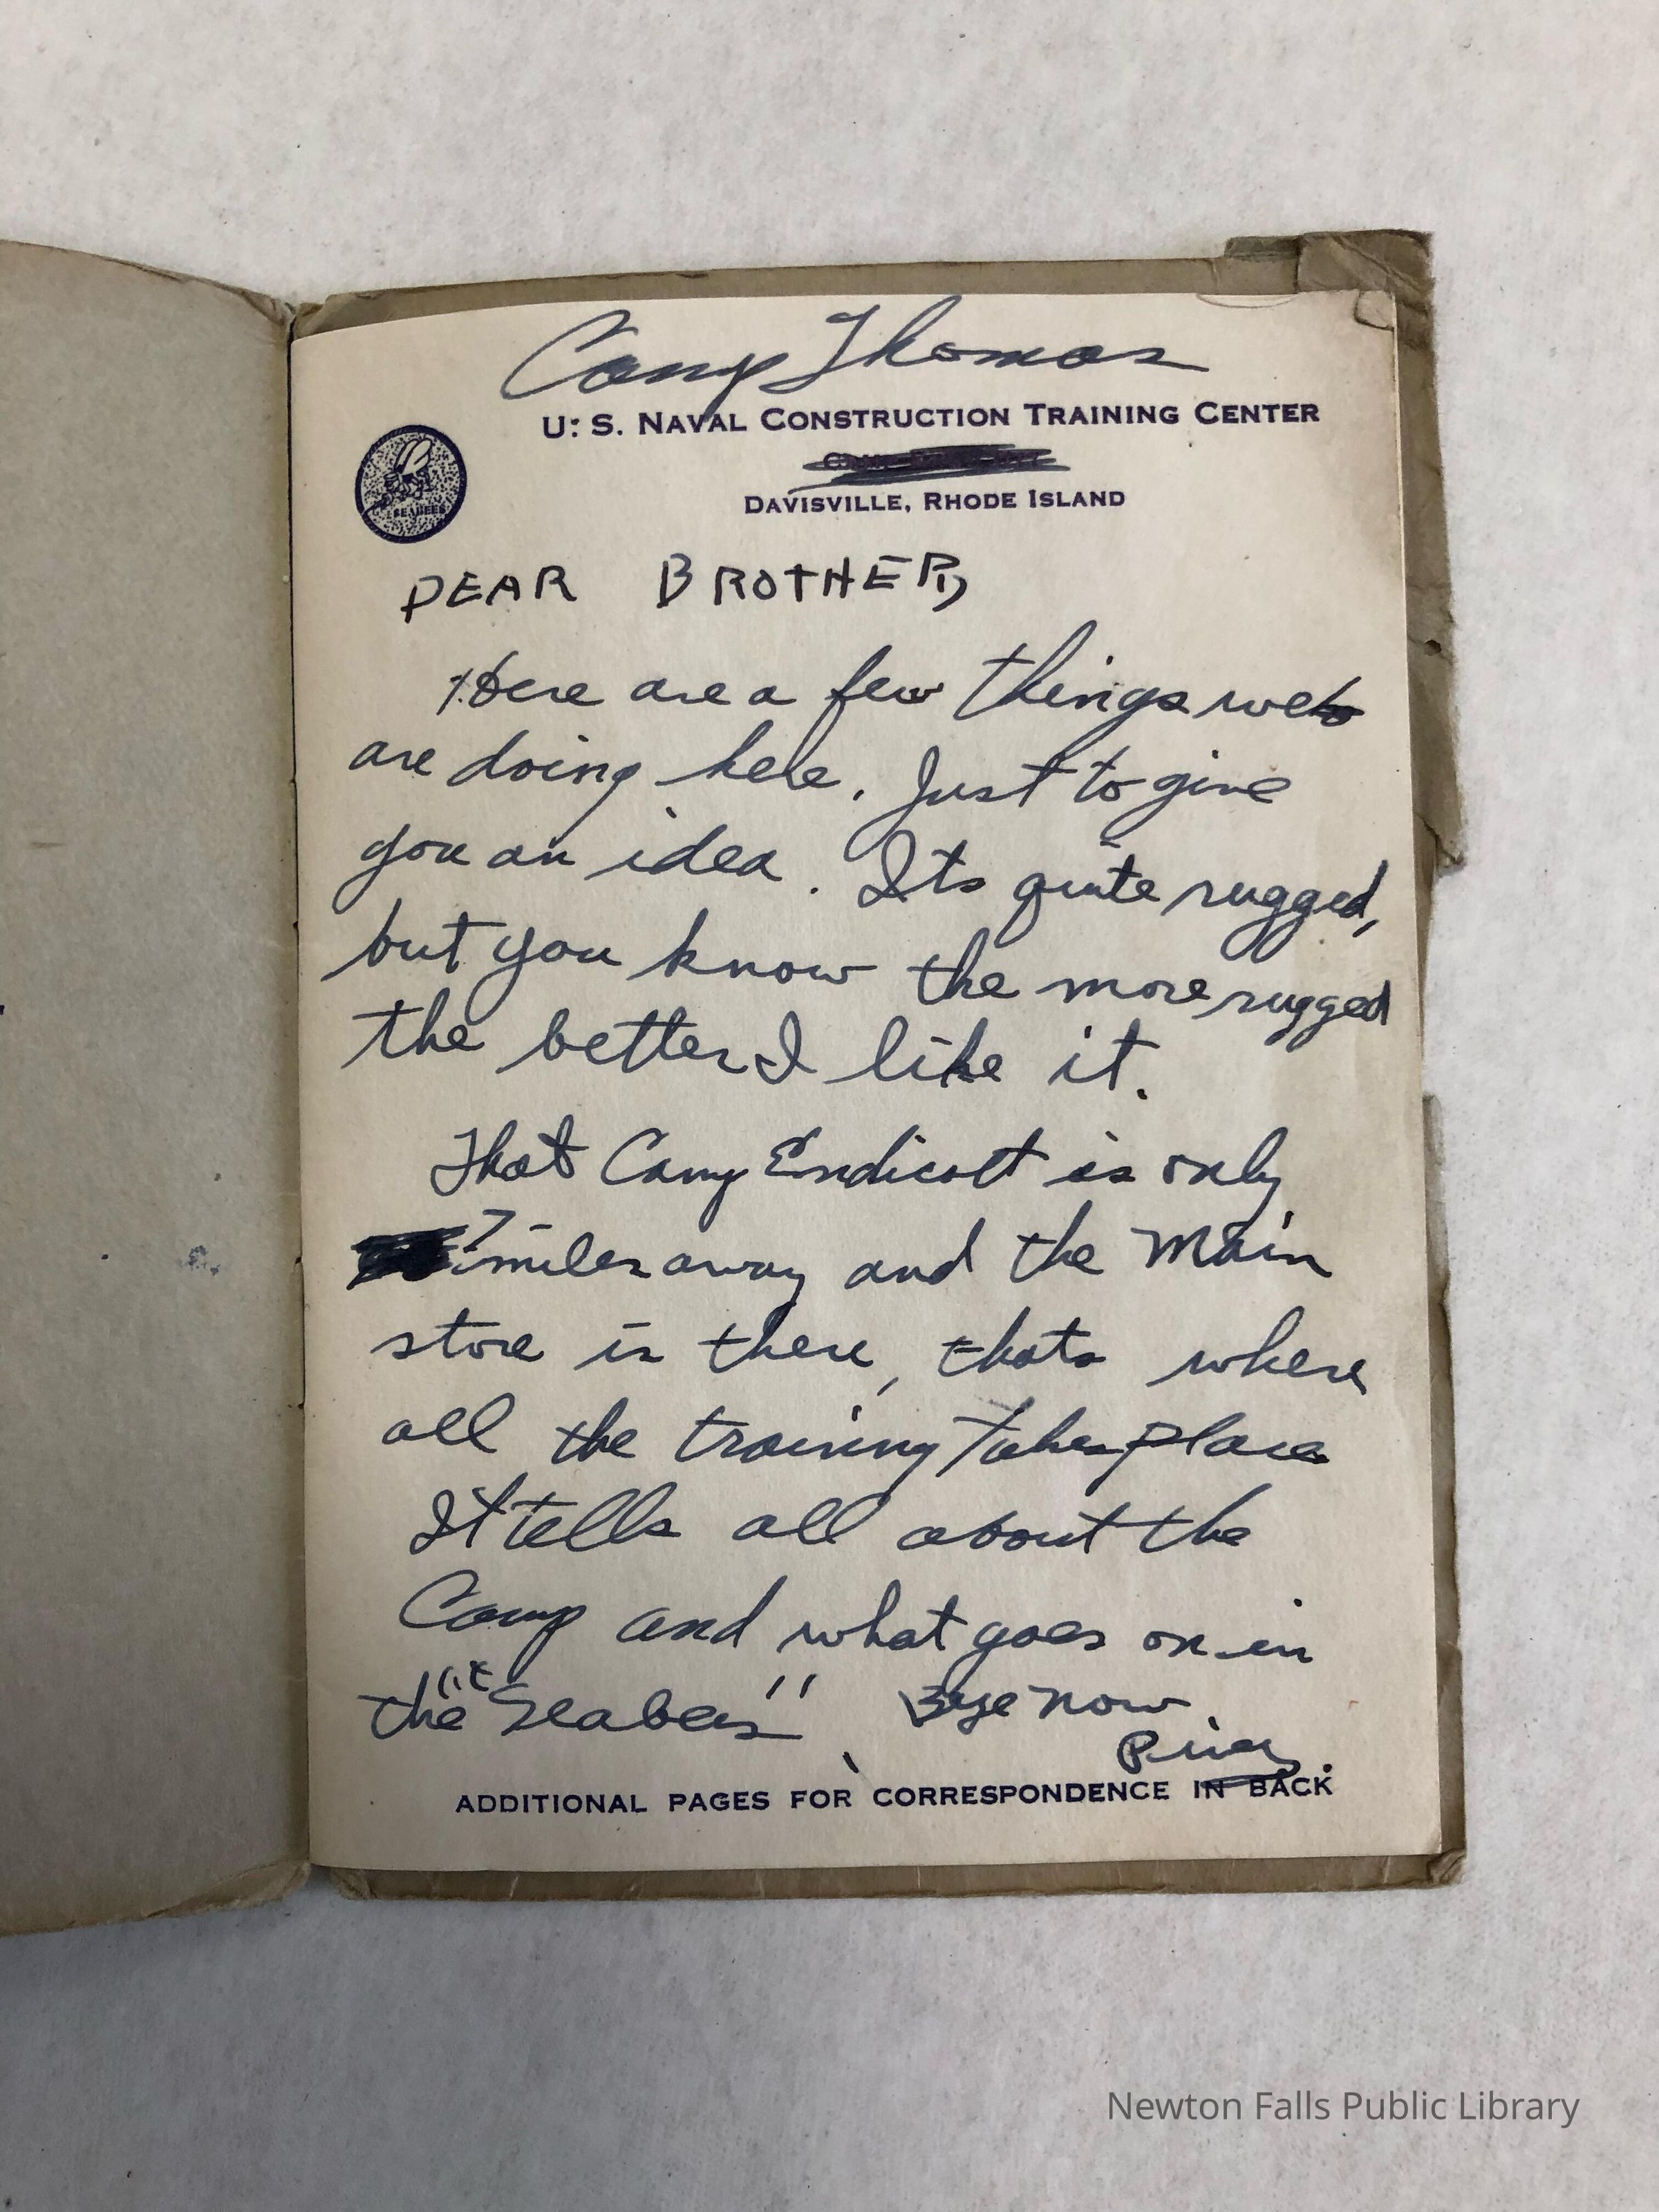 Camp Thomas
U. S. NAVAL CONSTRUCTION TRAINING CENTER
DAVISVILLE, RHODE ISLAND
SEABEES
DEAR BROTHER,
Here are a few things we
are doing here. Just to give
you an idea. Its quite rugged,
but you know the more rugged
the better I like it.
That Camp Endicott is only
7 miles away and the Main
store is there, thats where
all the training takes place
It tells all about the
Camp and what goes on in
the "Seabees" Bye now
ADDITIONAL PAGES FOR CORRESPONDENCE IN BACK
Newton Falls Public Library